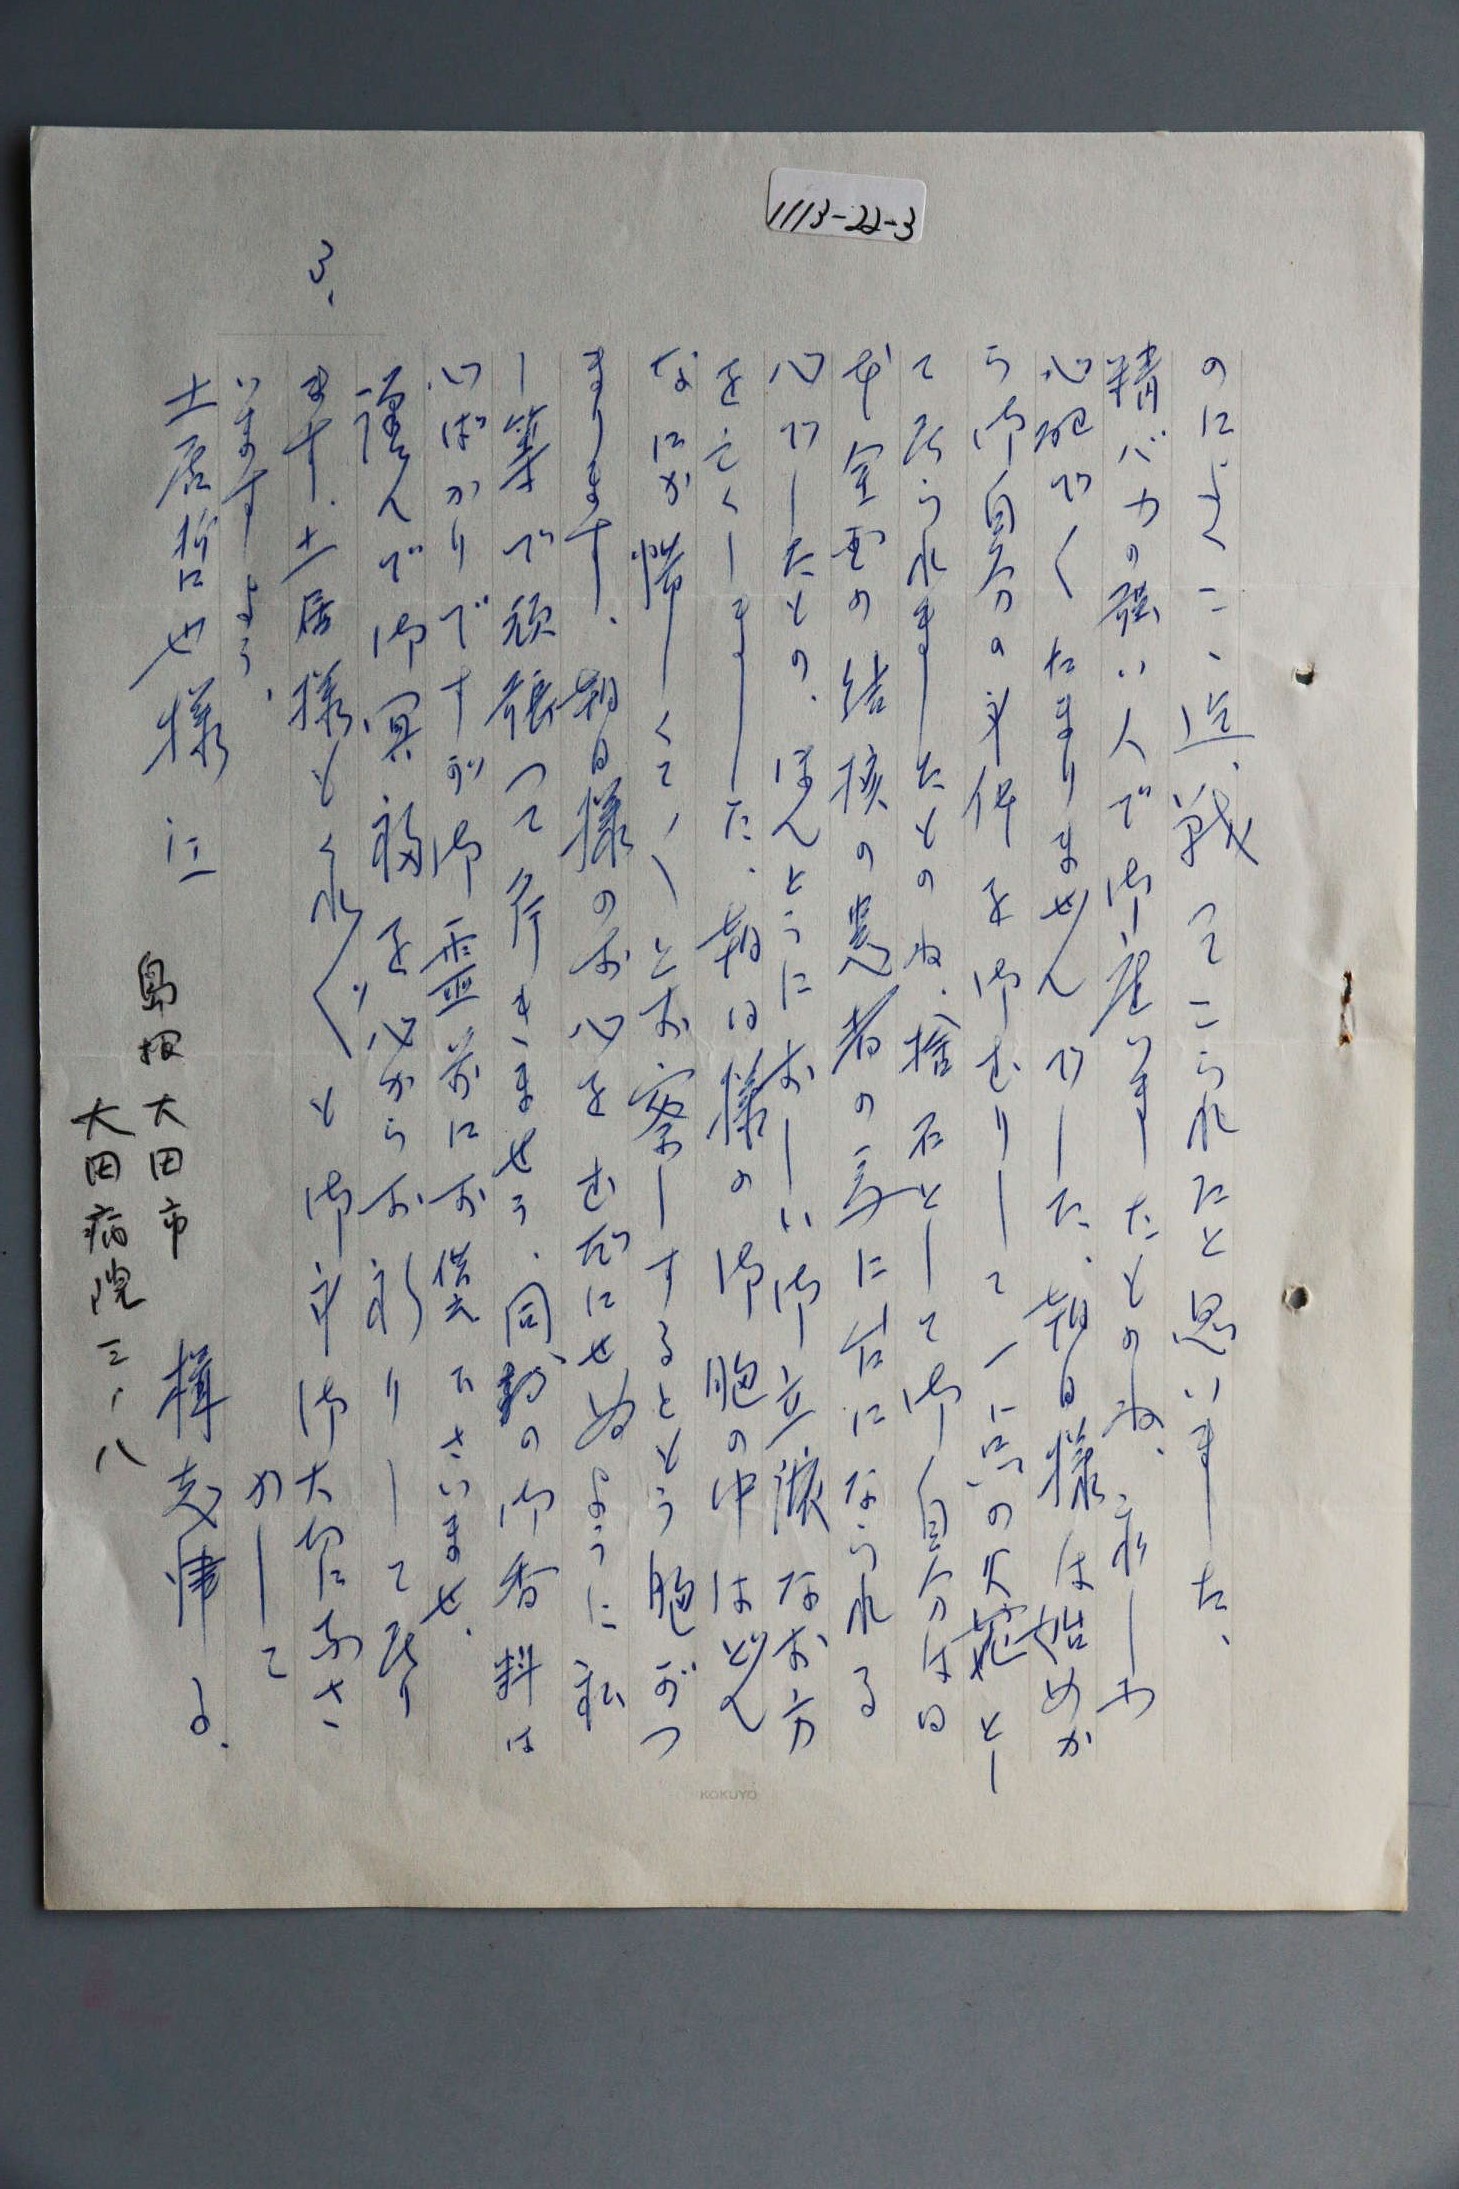 1113-22-3
3、
のによくこゝ迄、戦ってこられたと思いました、
精バカの強い人で御座いましたものね、永しゃ
心配でくたまりませんでした、朝日様は始めか
ら御自分の身体を御せりして一に点の火花とし
て居られましたものね、捨石として御自分は日
本全国の結核の患者の為に台になられる
心でしたもの、ほんとうにおしい御立派なお方
を亡くしました、朝日様の御胸の中はどん
なにか悌しくてとお察しするととう胸がつ
まります、朝日様のお心をむだにせぬように私
し等で頑張って斧きませう、同封の御香料は
心ばかりですが御霊前にお供え下さいませ、
謹んで御冥福を心からお祈りして居り
ます、土居様もくれ〲も御身御大切になさ
いますよう、
かして
土居哲也様に
島根大田市
大田病院三ノ八
KOKUYO